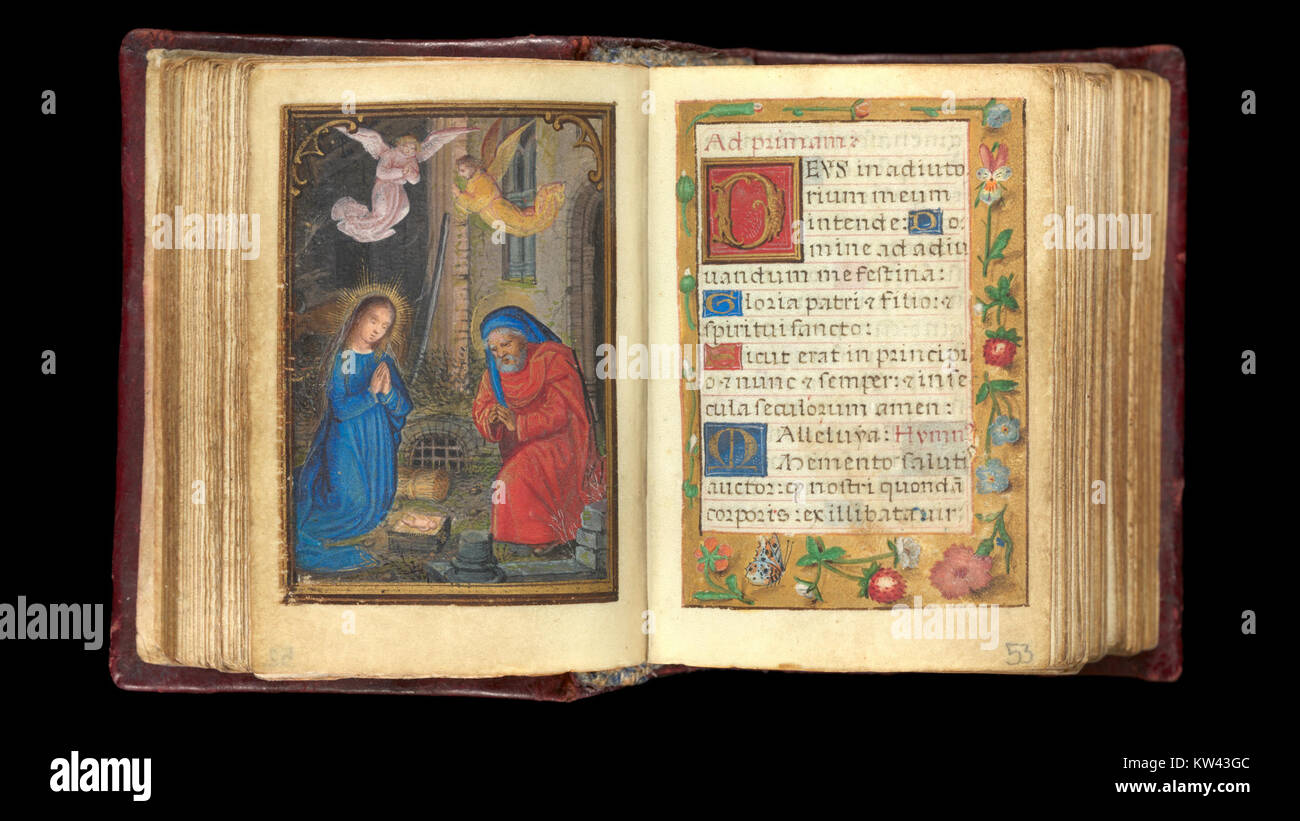 Ad primam:
DEVS in adiuto
rium meum
intende: Do
mine ad adiu
uandum me festina:
Gloria patri & filio: &
spiritui sancto:
Sicut erat in principi
o & nunc & semper: & in se
cula seculorum amen:
Alleluya: Hymnꝰ
Memento saluti
auctor: qͥ nostri quondā
corporis: ex illibata uir
53
alamy stock photo
alamy
KW43GC
www.alamy.com